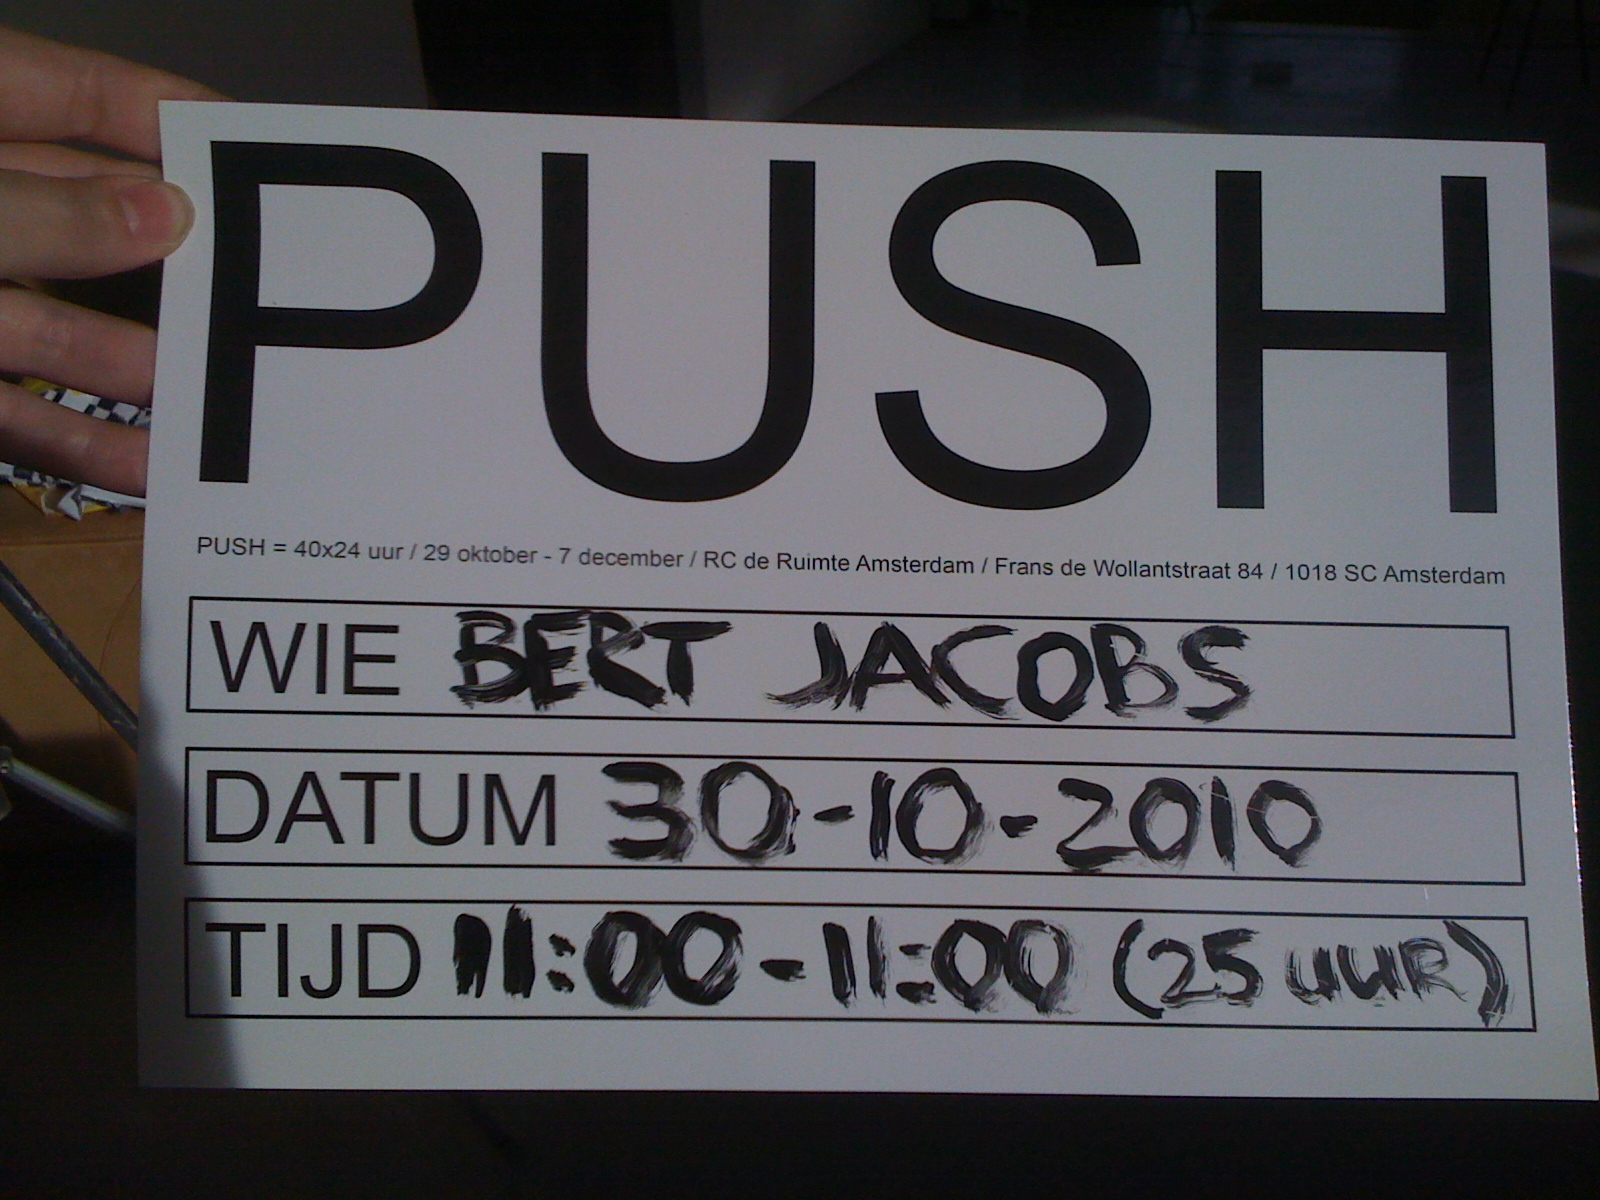 PUSH
PUSH = 40x24 uur / 29 oktober - 7 december / RC de Ruimte Amsterdam / Frans de Wollantstraat 84 / 1018 SC Amsterdam
WIE BERT JACOBS
DATUM 30-10-2010
TIJD 11:00-11:00 (25 UUR)